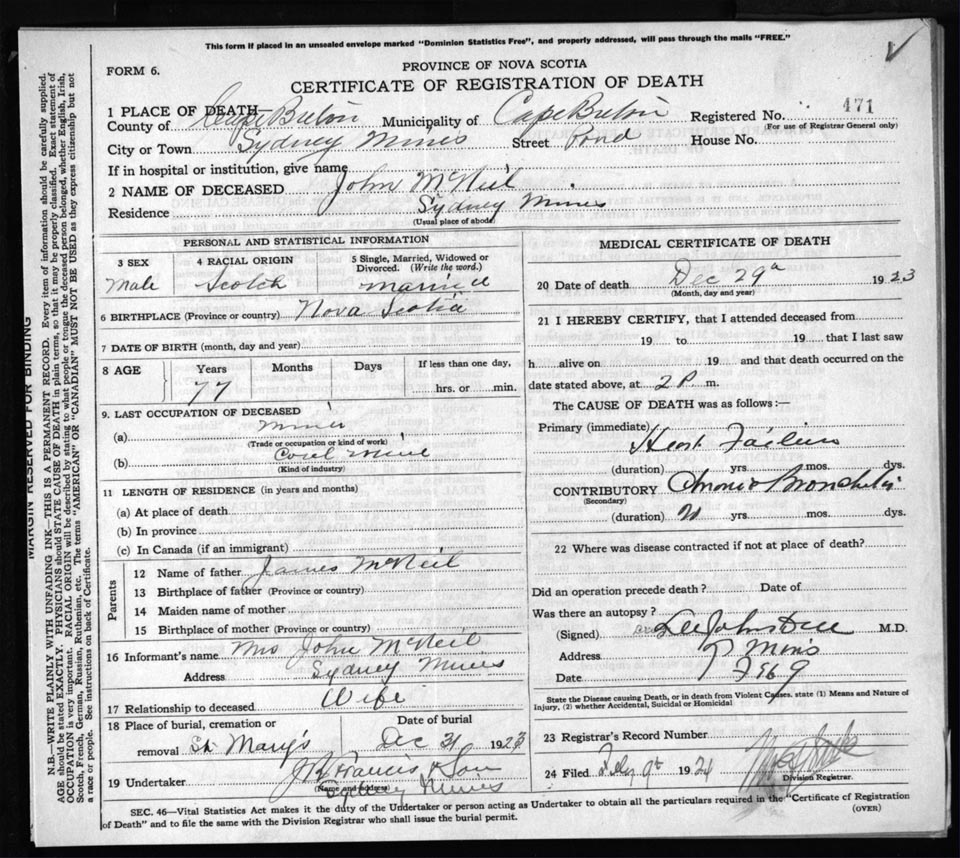 This form if placed in an unsealed envelope marked "Dominion Statistics Free", and properly addressed, will pass through the mails "FREE."
FORM 6.
PROVINCE OF NOVA SCOTIA
CERTIFICATE OF REGISTRATION OF DEATH
471
1 PLACE OF DEATH—
County of Cape Breton Municipality of Cape Breton Registered No.
(For use of Registrar General only)
City or Town Sydney Mines Street Pond House No.
If in hospital or institution, give name
2 NAME OF DECEASED John McNeil
Residence Sydney Mines
(Usual place of abode)
PERSONAL AND STATISTICAL INFORMATION
3 SEX 4 RACIAL ORIGIN 5 Single, Married, Widowed or Divorced. (Write the word.)
Male Scotch Married
6 BIRTHPLACE (Province or country) Nova Scotia
7 DATE OF BIRTH (month, day and year)
8 AGE Years Months Days If less than one day,
77 hrs. or min.
9. LAST OCCUPATION OF DECEASED
(a) Miner
(Trade or occupation or kind of work)
(b) Coal Mine
(Kind of industry)
11 LENGTH OF RESIDENCE (in years and months)
(a) At place of death
(b) In province
(c) In Canada (if an immigrant)
Parents
12 Name of father James McNeil
13 Birthplace of father (Province or country)
14 Maiden name of mother
15 Birthplace of mother (Province or country)
16 Informant's name Mrs John McNeil
Address Sydney Mines
17 Relationship to deceased Wife
18 Place of burial, cremation or Date of burial
removal St Mary's Dec 31 1923
19 Undertaker J B Francis & Son
(Name and address)
Sydney Mines
MEDICAL CERTIFICATE OF DEATH
20 Date of death Dec 29th 1923
(Month, day and year)
21 I HEREBY CERTIFY, that I attended deceased from
19 to 19 that I last saw
h alive on 19 and that death occurred on the
date stated above, at 2 P. m.
The CAUSE OF DEATH was as follows:—
Primary (immediate) Heart Failure
(duration) yrs. mos. dys.
CONTRIBUTORY Chronic Bronchitis
(Secondary)
(duration) yrs. mos. dys.
22 Where was disease contracted if not at place of death?
Did an operation precede death? Date of
Was there an autopsy?
(Signed) M.D.
Address Mines
Date Feb 9
State the Disease causing Death, or in death from Violent Causes, state (1) Means and Nature of
Injury, (2) whether Accidental, Suicidal or Homicidal
23 Registrar's Record Number
24 Filed Feby 9th 1924
Division Registrar.
SEC. 46—Vital Statistics Act makes it the duty of the Undertaker or person acting as Undertaker to obtain all the particulars required in the "Certificate of Registration
of Death" and to file the same with the Division Registrar who shall issue the burial permit.
(OVER)
MARGIN RESERVED FOR BINDING
N.B.—WRITE PLAINLY WITH UNFADING INK—THIS IS A PERMANENT RECORD. Every item of information should be carefully supplied.
AGE should be stated EXACTLY. PHYSICIANS should STATE CAUSE OF DEATH in plain terms, so that it may be properly classified. Exact statement of
OCCUPATION is very important. RACIAL ORIGIN will be described by stating to what people or tongue the deceased person belonged, whether English, Irish,
Scotch, French, German, Russian, Ruthenian, etc. The terms "AMERICAN" or "CANADIAN" MUST NOT BE USED as they express citizenship but not
a race or people. See instructions on back of Certificate.